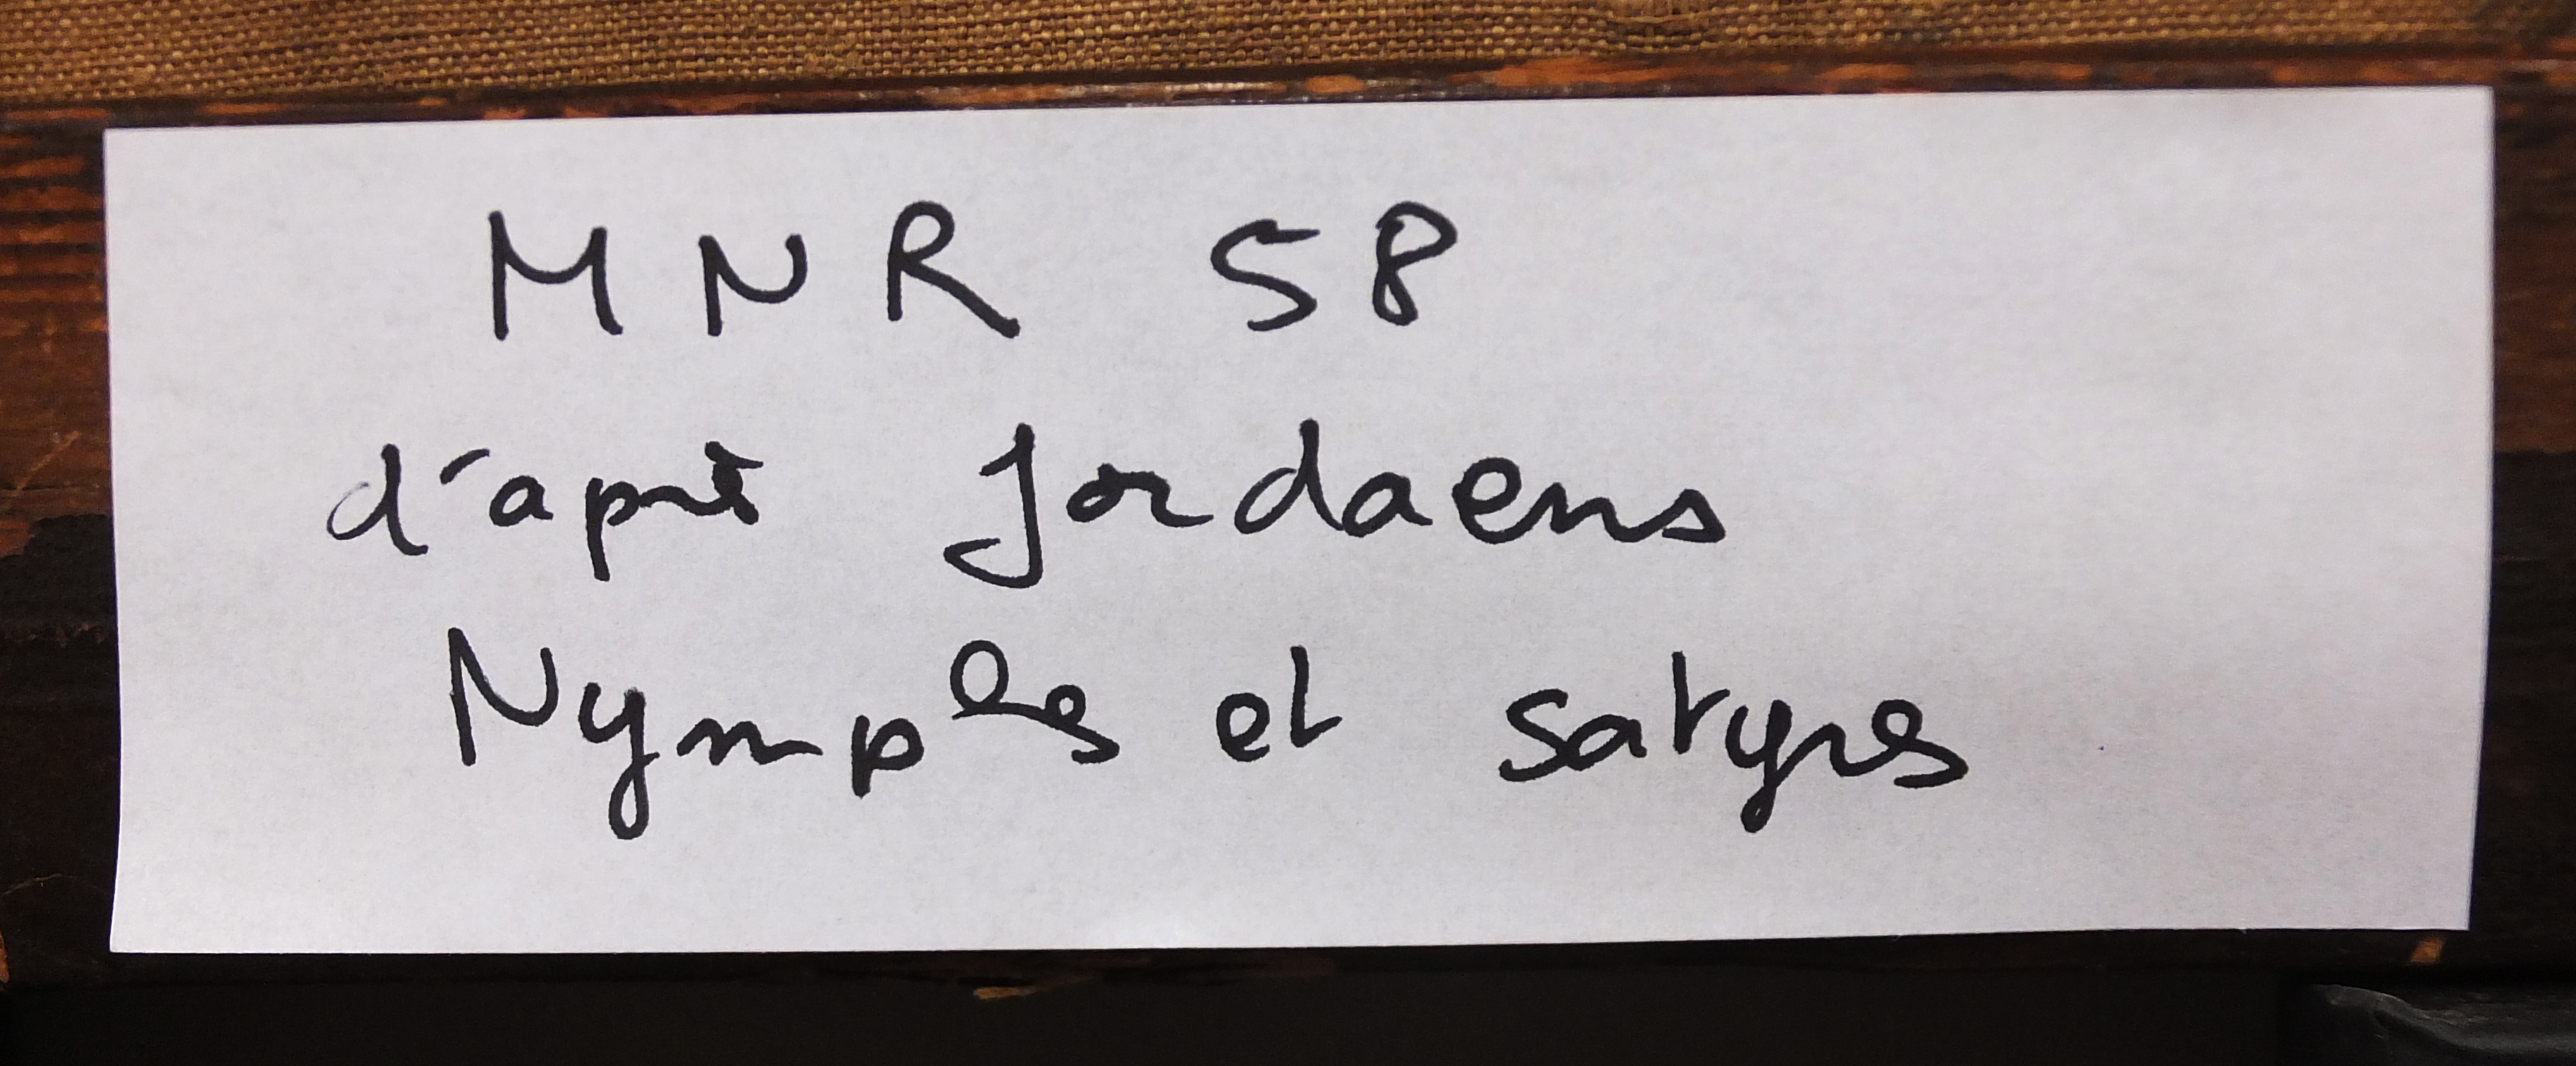 MNR 58
d'après Jordaens
Nymphes et satyres